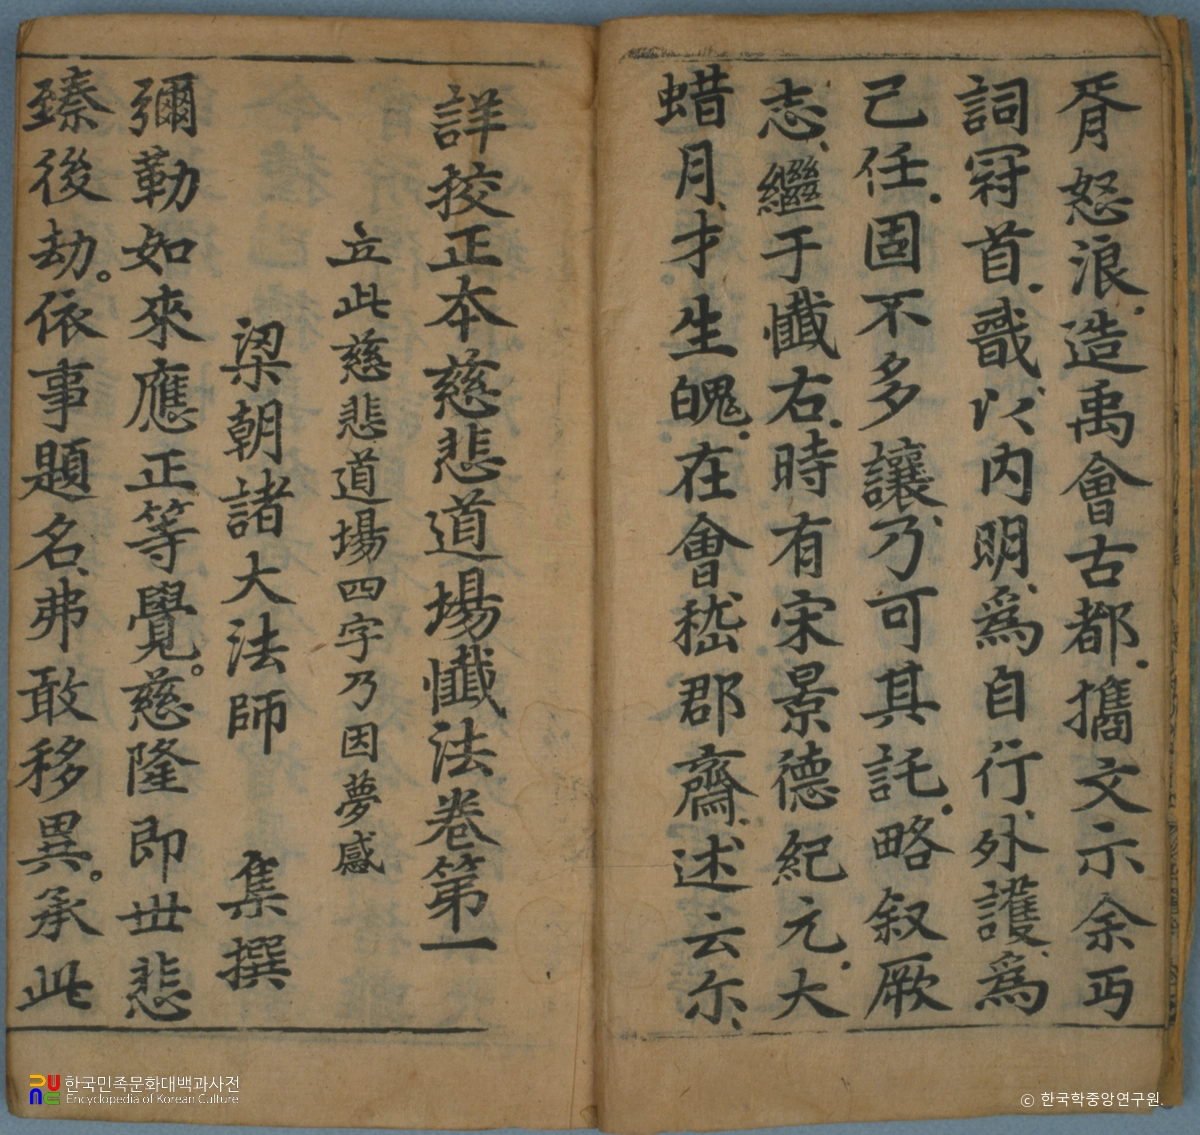 胥怒浪造禹會古都攜文示余丏
詞冠首戩以內明為自行外護為
己任固不多讓乃可其託略叙厥
志繼于懺右時有宋景德紀元大
蜡月才生魄在會嵇郡齋述云尒
詳挍正本慈悲道場懺法卷第一
立此慈悲道場四字乃因夢感
梁朝諸大法師 集撰
彌勒如來應正等覺慈隆即丗悲
臻後劫依事題名弗敢移異承此
한국민족문화대백과사전
Encyclopedia of Korean Culture
© 한국학중앙연구원.